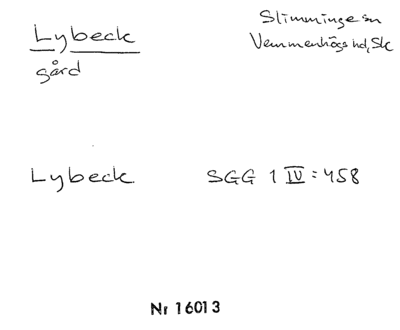 Lybeck
gård
Slimminge sn
Vemmenhögs hd, Sk
Lybeck SGG 1 IV:458
Nr 16013